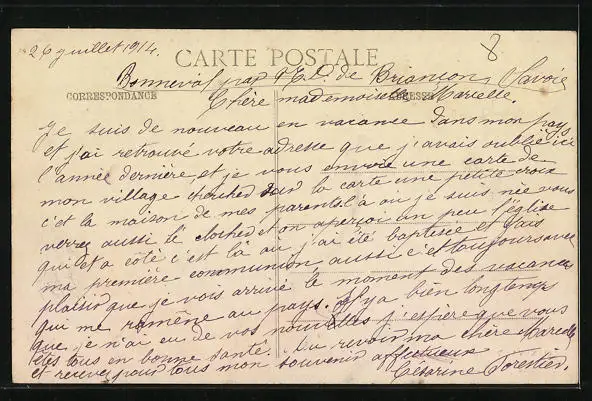 26 juillet 1914.
CARTE POSTALE
8
Bonneval par N.D. de Briançon, Savoie
CORRESPONDANCE
Chère mademoiselle Marcelle.
Je suis de nouveau en vacance dans mon pays
et j'ai retrouvé votre adresse que j'avais oublié ici
l'année dernière, et je vous envoie une carte de
mon village cherchez sur la carte une petite croix
c'et la maison de mes parents là ou je suis née vous
verrez aussi le clocher et on aperçoi un peu l'église
qui et a coté c'est là ou j'ai été baptisée et fais
ma première communion aussi c'et toujours avec
plaisir que je vois arrivé le moment des vacances
qui me ramène au pays. Il y a bien longtemps
que je n'ai eu de vos nouvelles j'espère que vous
êtes tous en bonne santé. Au revoir ma chère Marcelle
et recevez pour tous mon souvenir affectueux
Césarine Forestier.